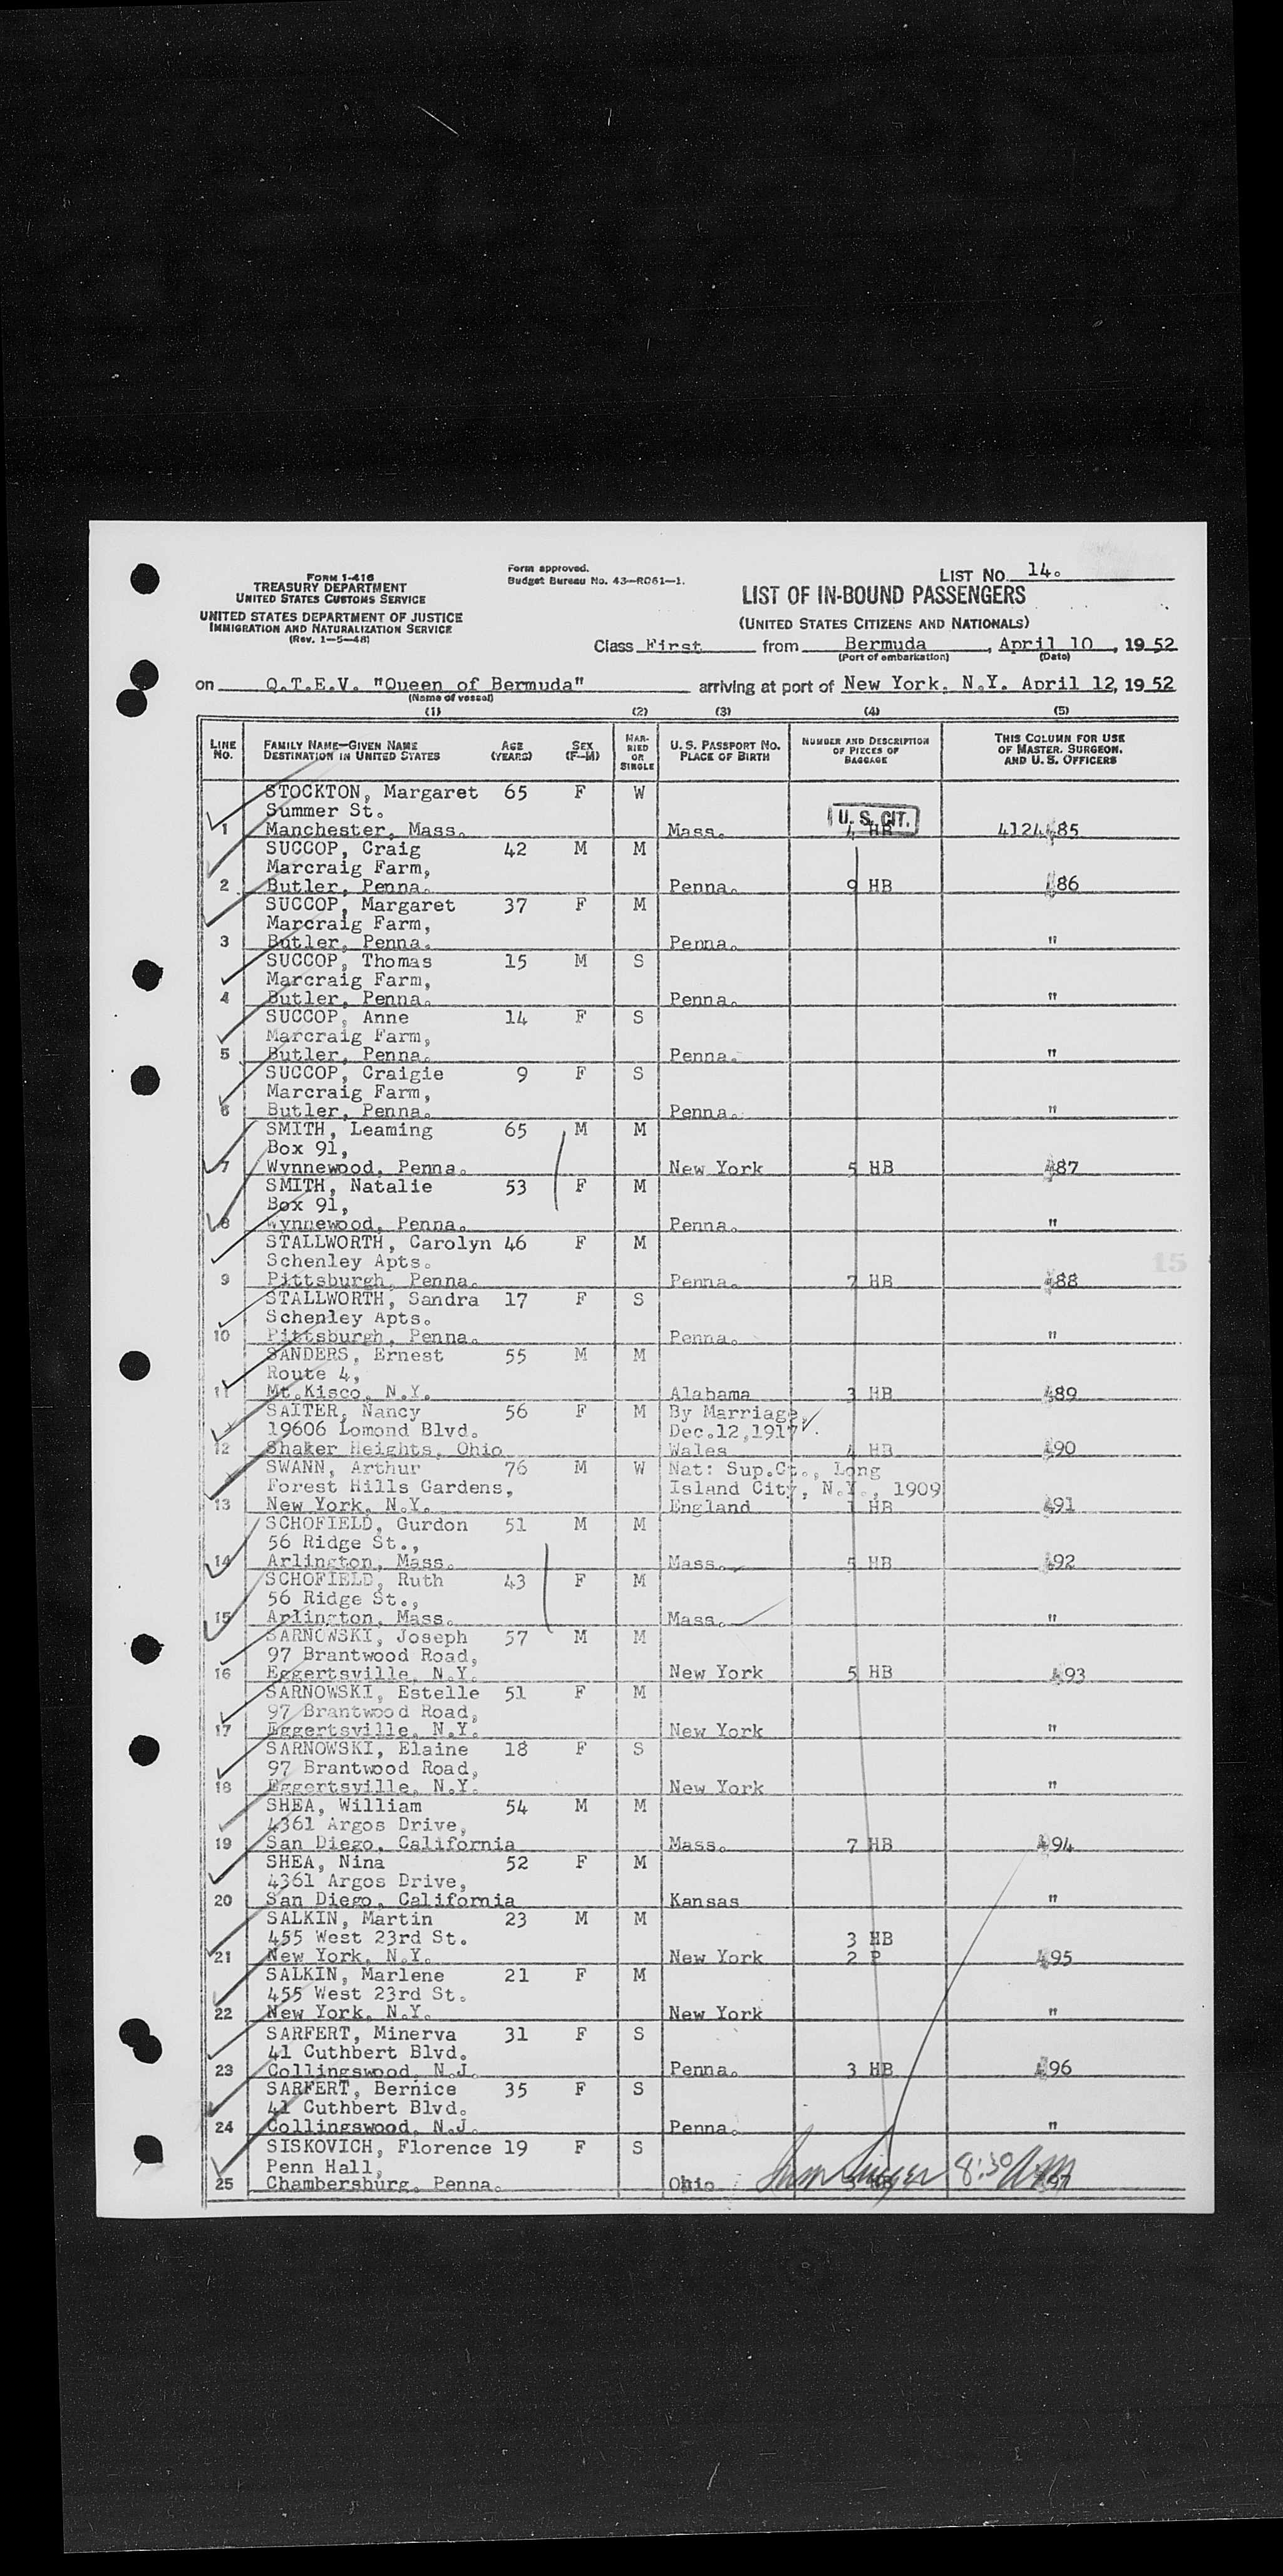 FORM I-416
TREASURY DEPARTMENT
UNITED STATES CUSTOMS SERVICE
UNITED STATES DEPARTMENT OF JUSTICE
IMMIGRATION AND NATURALIZATION SERVICE
(Rev. 1-5-48)
Form approved.
Budget Bureau No. 43-R061-1.
LIST NO. 14.
LIST OF IN-BOUND PASSENGERS
(UNITED STATES CITIZENS AND NATIONALS)
Class First from Bermuda, April 10, 1952
(Port of embarkation) (Date)
on Q.T.E.V. "Queen of Bermuda" arriving at port of New York, N.Y. April 12, 1952
(Name of vessel)
(1) (2) (3) (4) (5)
LINE NO. FAMILY NAME-GIVEN NAME DESTINATION IN UNITED STATES AGE (YEARS) SEX (F-M) MARRIED OR SINGLE U. S. PASSPORT NO. PLACE OF BIRTH NUMBER AND DESCRIPTION OF PIECES OF BAGGAGE THIS COLUMN FOR USE OF MASTER, SURGEON, AND U. S. OFFICERS
STOCKTON, Margaret 65 F W
Summer St. U. S. CIT.
1 Manchester, Mass. Mass. 4 HB 4124485
SUCCOP, Craig 42 M M
Marcraig Farm,
2 Butler, Penna. Penna. 9 HB 486
SUCCOP, Margaret 37 F M
Marcraig Farm,
3 Butler, Penna. Penna. "
SUCCOP, Thomas 15 M S
Marcraig Farm,
4 Butler, Penna. Penna. "
SUCCOP, Anne 14 F S
Marcraig Farm,
5 Butler, Penna. Penna. "
SUCCOP, Craigie 9 F S
Marcraig Farm,
6 Butler, Penna. Penna. "
SMITH, Leaming 65 M M
Box 91,
7 Wynnewood, Penna. New York 5 HB 487
SMITH, Natalie 53 F M
Box 91,
8 Wynnewood, Penna. Penna. "
STALLWORTH, Carolyn 46 F M
Schenley Apts.
9 Pittsburgh, Penna. Penna. 7 HB 488
15
STALLWORTH, Sandra 17 F S
Schenley Apts.
10 Pittsburgh, Penna. Penna. "
SANDERS, Ernest 55 M M
Route 4,
11 Mt.Kisco, N.Y. Alabama 3 HB 489
SAITER, Nancy 56 F M By Marriage,
19606 Lomond Blvd. Dec.12,1917.
12 Shaker Heights, Ohio Wales 4 HB 490
SWANN, Arthur 76 M W Nat: Sup.Ct., Long
Forest Hills Gardens, Island City, N.Y., 1909
13 New York, N.Y. England 1 HB 491
SCHOFIELD, Gurdon 51 M M
56 Ridge St.,
14 Arlington, Mass. Mass. 5 HB 492
SCHOFIELD, Ruth 43 F M
56 Ridge St.,
15 Arlington, Mass. Mass. "
SARNOWSKI, Joseph 57 M M
97 Brantwood Road,
16 Eggertsville, N.Y. New York 5 HB 493
SARNOWSKI, Estelle 51 F M
97 Brantwood Road,
17 Eggertsville, N.Y. New York "
SARNOWSKI, Elaine 18 F S
97 Brantwood Road,
18 Eggertsville, N.Y. New York "
SHEA, William 54 M M
4361 Argos Drive,
19 San Diego, California Mass. 7 HB 494
SHEA, Nina 52 F M
4361 Argos Drive,
20 San Diego, California Kansas "
SALKIN, Martin 23 M M
455 West 23rd St. 3 HB
21 New York, N.Y. New York 2 P 495
SALKIN, Marlene 21 F M
455 West 23rd St.
22 New York, N.Y. New York "
SARFERT, Minerva 31 F S
41 Cuthbert Blvd.
23 Collingswood, N.J. Penna. 3 HB 496
SARFERT, Bernice 35 F S
41 Cuthbert Blvd.
24 Collingswood, N.J. Penna. "
SISKOVICH, Florence 19 F S
Penn Hall, 8:30 AM
25 Chambersburg, Penna. Ohio 497